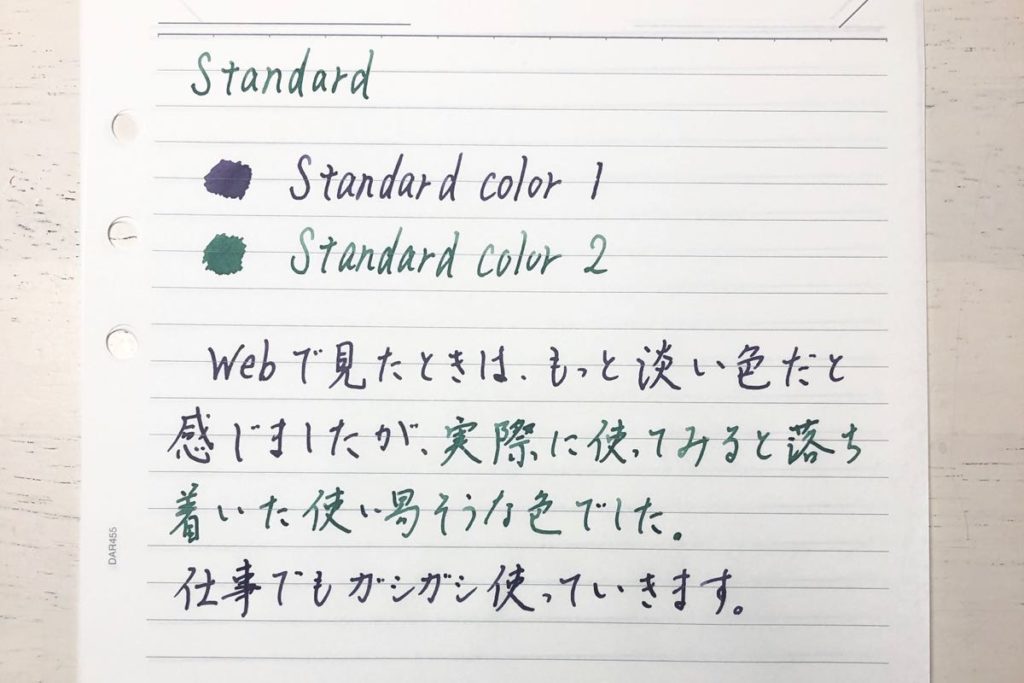 Standard
Standard color 1
Standard color 2
Webで見たときは、もっと淡い色だと
感じましたが、実際に使ってみると落ち
着いた使い易そうな色でした。
仕事でもガシガシ使っていきます。
DAR455